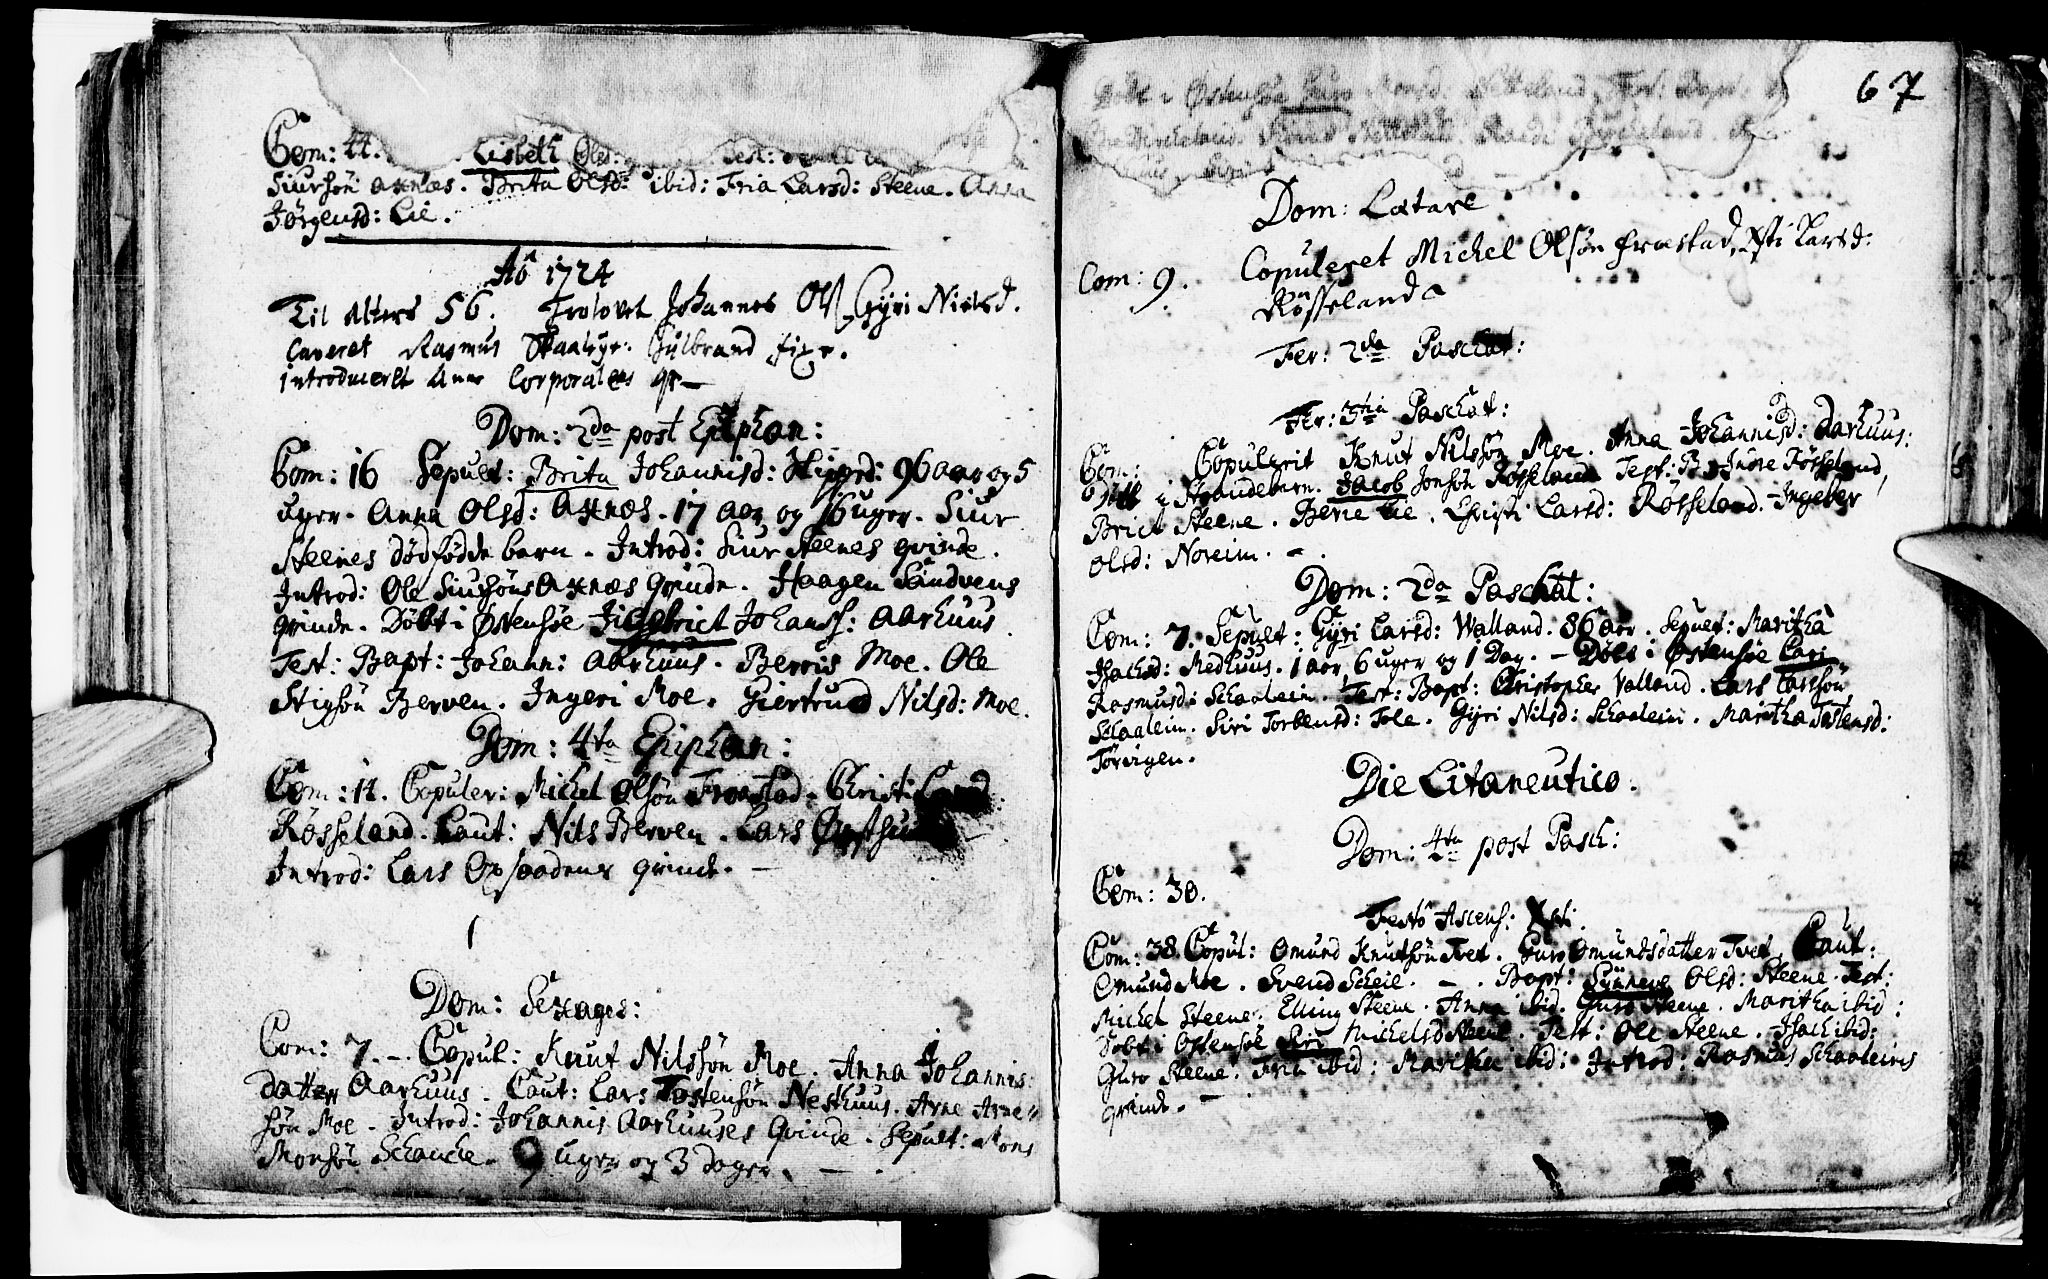 Com: 44. Lisbeth Test:
Siursøn Axnæs. Brita Olsd: ibid: Fria Larsd: Steene. Anna
Jørgensd: Lie.
Aō 1724
Til Alters 56. Trolovet Johannes Ols Gyri Nielsd.
Caveret Rasmus Skaalhye. Gulbrand
introduceret Anne Corporalens
Dom: 2da post Epiphan:
Com: 16 Sepult: Brita Johannisd: 96 aar og 5
uger. Anna Olsd: Axnæs. 17 aar og 16 uger. Siur
Steenes dødfødde barn. Introd: Siur Steenes qvinde.
Introd: Ole Siursøns Axnæs Qvinde. Haagen Sandvens
qvinde. Døbt i Østensøe Johanss: Aarhuus
Test: Bapt: Johann: Aarhuus. Berris Moe. Ole
Stigsøn Berven. Ingeri Moe. Giertrud Nilsd: Moe.
Dom: 4ta Epiphan:
Com: 14. Copuler: Michel Olsøn Frøstad. Christi
Røsseland. Caut: Nils Berven. Lars
Introd: Lars Opsaadens qvinde. —
Dom: Sexages:
Com: 7. — Copul: Knut Nilssøn Moe. Anna Johannis
datter Aarhuus. Caut: Lars Tostensøn Nesthuus. Arne Arne
søn Moe. Introd: Johannis Aarhuuses Qvinde. Sepult: Mons
Monsøn Schaarhe. 9 uger og 3 dager. —
67
Døbt i Østensøe Guro
Dom: Lætare
Com: 9. Copuleret Michel Olsøn Frøstad, Xsti Larsd:
Røsseland
Fer: 2da Paschat:
Fer: 3tia Paschat:
Com: Copulerit Knut Nilssøn Moe. Anna Johannisd: Aarhuus:
i Strandebarn. Jacob Jonsøn Røsseland Test: B: Røsseland,
Brict Steene. Berie Lie. Christi Larsd: Røsseland. Ingebor
Olsd: Noreim. —
Dom: 2da Paschat:
Com: 7. Sepult: Gyri Larsd: Walland. 86 aar. Sepult: Maritha
Isachsd: Medhuus. 1 aar, 6 uger og 1 Dag. — Døbt i Østensøe Lari
Rasmusd: Schaaleim. Test: Bapt: Christopher Valland. Lars Larssøn
Schaaleim. Siri Torbensd: Tole. Gyri Nilsd: Schaaleim. Maritha Tostensd:
Tørvigen.
Die Litaneutico.
Dom: 4ta post Pasch:
Com: 30.
Festo Ascens: Xsti
Com: 38. Copul: Omund Knutsøn Tvet. Guro Omundsdatter Tvet. Caut:
Omund Moe. Svend Scheie. — . Bapt: Synneve Olsd: Steene. Test:
Michel Steene. Elling Steene. Anna ibid. Guro Steene. Maritha ibid:
Døbt i Østensøe Siri Michelsd Steene. Test: Ole Steene. Isach ibid:
Guro Steene. Fria ibid: Maritha ibid: Introd: Rasmus Schaaleims
qvinde. —